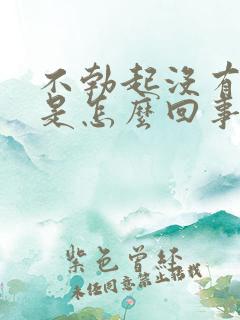 不勃起没有
是怎麽回事
紫色曾经
未经同意禁止转载